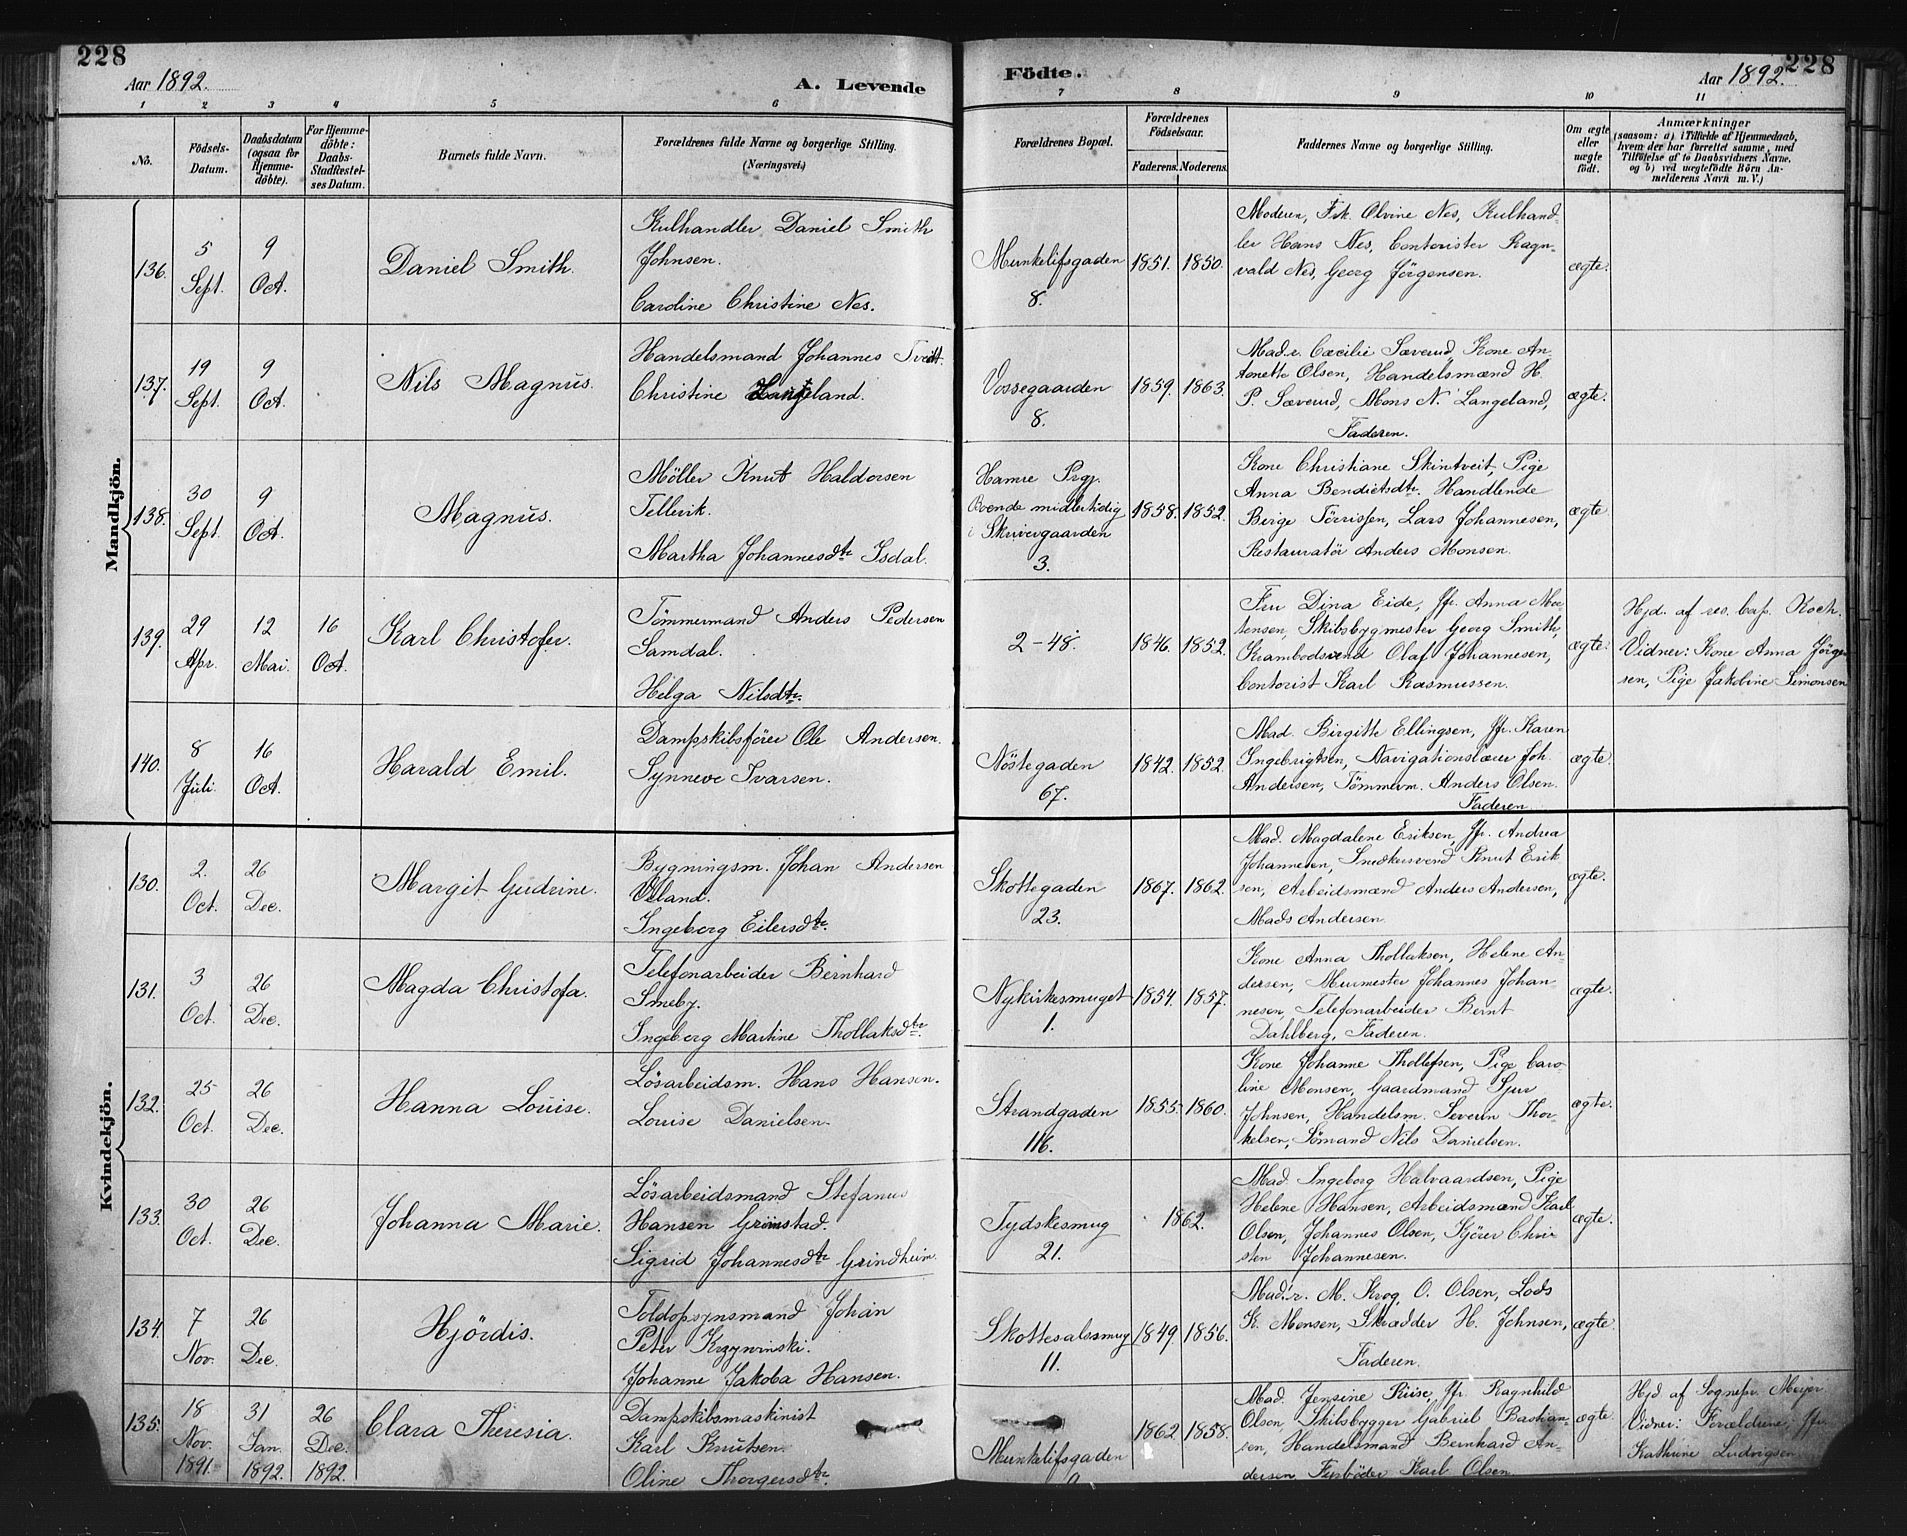 228
Aar 1892.
A. Levende
1 2 3 4 5 6
No.
Födsels-
Datum.
Daabsdatum
(ogsaa for
Hjemme-
döbte).
For Hjemme-
döbte:
Daabs-
Stadfæstel-
ses Datum.
Barnets fulde Navn.
Forældrenes fulde Navne og borgerlige Stilling.
(Næringsvei.)
Födte.
Aar 1892.
228
7 8 9 10 11
Forældrenes Bopæl.
Forældrenes
Födselsaar.
Faderens. Moderens.
Faddernes Navne og borgerlige Stilling.
Om ægte
eller
uægte
födt.
Anmærkninger
(saasom: a) i Tilfælde af Hjemmedaab,
hvem der har forrettet samme, med
Tilföielse af to Daabsvidners Navne,
og b) ved uægtefödte Börn An-
melderens Navn m. V.)
Mandkjön.
136.
5
Sept.
9
Oct.
Daniel Smith.
Kulhandler Daniel Smith
Johnsen.
Cardine Christine Nes.
Munkelifsgaden
8.
1851. 1850.
Moderen, Frk. Olvine Nes, Kulhand-
ler Hans Nes, Contorister Ragn-
vald Nes, Georg Jörgensen.
ægte.
137.
19
Sept.
9
Oct.
Nils Magnus.
Handelsmand Johannes Tveitt.
Christine
Vossegaarden
8.
1859. 1863.
Mad.r. Cæcilie Sæverud, Kone An-
tonette Olsen, Handelsmænd H.
P. Sæverud, Mons N. Langeland,
Faderen.
ægte.
138.
30
Sept.
9
Oct.
Magnus.
Möller Knut Haldorsen
Tellevik.
Martha Johannesdtr Isdal.
Hamre Prgj.
Boende midlertidig
i Skrivergaarden
3.
1858. 1852.
Kone Christiane Skintveit, Pige
Anna Bendictsdtr. Handlende
Berge Törrissen, Lars Johannesen,
Restauratör Anders Monsen.
ægte.
139.
29
Apr.
12
Mai.
16
Oct.
Karl Christofer.
Tömmermand Anders Pedersen
Samdal.
Helga Nilsdtr.
2-48.
1846. 1852.
Fru Dina Eide, Jfr. Anna Mor-
tensen, Skibsbygmester Georg Smith,
Krambodsvend Olaf Johannesen,
Contorist Karl Rasmussen.
ægte.
Hjd. af res. Cap. Koch.
Vidner: Kone Anna Jörgen-
sen, Pige Jakobine Simonsen
140.
8
Juli.
16
Oct.
Harald Emil.
Dampskibsförer Ole Andersen.
Synneve Ivarsen.
Nöstegaden
67.
1842. 1852.
Mad. Birgitte Ellingsen, Jfr. Karen
Ingebrigtsen, Navigationslærer Joh.
Andersen, Tömmerm. Anders Olsen.
Faderen.
ægte.
Kvindekjön.
130.
2.
Oct.
26
Dec.
Margit Gudrine.
Bygningsm. Johan Andersen
Ingeborg Eilersdtr.
Skottegaden
23.
1867. 1862.
Mad. Magdalene Eriksen, Jfr. Andrea
Johannesen, Snedkersvend Knut Erik
sen, Arbeidsmænd Anders Andersen,
Mads Andersen.
ægte.
131.
3
Oct.
26
Dec.
Magda Christofa.
Telefonarbeider Bernhard
Smeby.
Ingeborg Martine Thollaksdtr.
Nykirkesmuget
1.
1854. 1857.
Kone Anna Thollaksen, Helene An-
dersen, Murmester Johannes Johan-
nesen, Telefonarbeider Bernt
Dahlberg, Faderen.
ægte.
132.
25
Oct.
26
Dec.
Hanna Louise.
Lösarbeidsm. Hans Hansen.
Louise Danielsen.
Strandgaden
116.
1855. 1860.
Kone Johanne Thollefsen, Pige Caro-
line Monsen, Gaardmand Sjur
Johnsen, Handelsm. Severin Thor-
kelsen, Sömand Nils Danielsen.
ægte.
133.
30
Oct.
26
Dec.
Johanna Marie.
Lösarbeidsmand Stefanus
Hansen Grimstad.
Sigrid Johannesdtr Grindheim.
Tydskesmug
21.
1862.
Mad. Ingeborg Halvaardsen, Pige
Helene Hansen, Arbeidsmænd Karl
Olsen, Johannes Olsen, Kjörer Chri-
sten Johannesen.
ægte.
134.
7
Nov.
26
Dec.
Hjördis.
Toldopsynsmand Johan
Peter Krzywinski.
Johanne Jakoba Hansen.
Skottesalssmug
11.
1849. 1856.
Mad.r. M. Krog, O. Olsen, Lods
K. Monsen, Skrædder H. Johnsen,
Faderen.
ægte.
135.
18
Nov.
1891.
31
Jan.
1892.
26
Dec.
1892.
Clara Theresia.
Dampskibsmaskinist
Karl Knutsen.
Oline Thorgersdtr.
Munkelifsgaden
1862 1858.
Mad. Jensine Riise, Jfr. Ragnhild
Olsen, Skibsbygger Gabriel Bastian-
sen, Handelsmand Bernhard An-
dersen, Fyrböder Karl Olsen.
ægte.
Hjd af Sognepr. Meyer
Vidner: Forældrene, Jfr.
Kathrine Ludvigsen